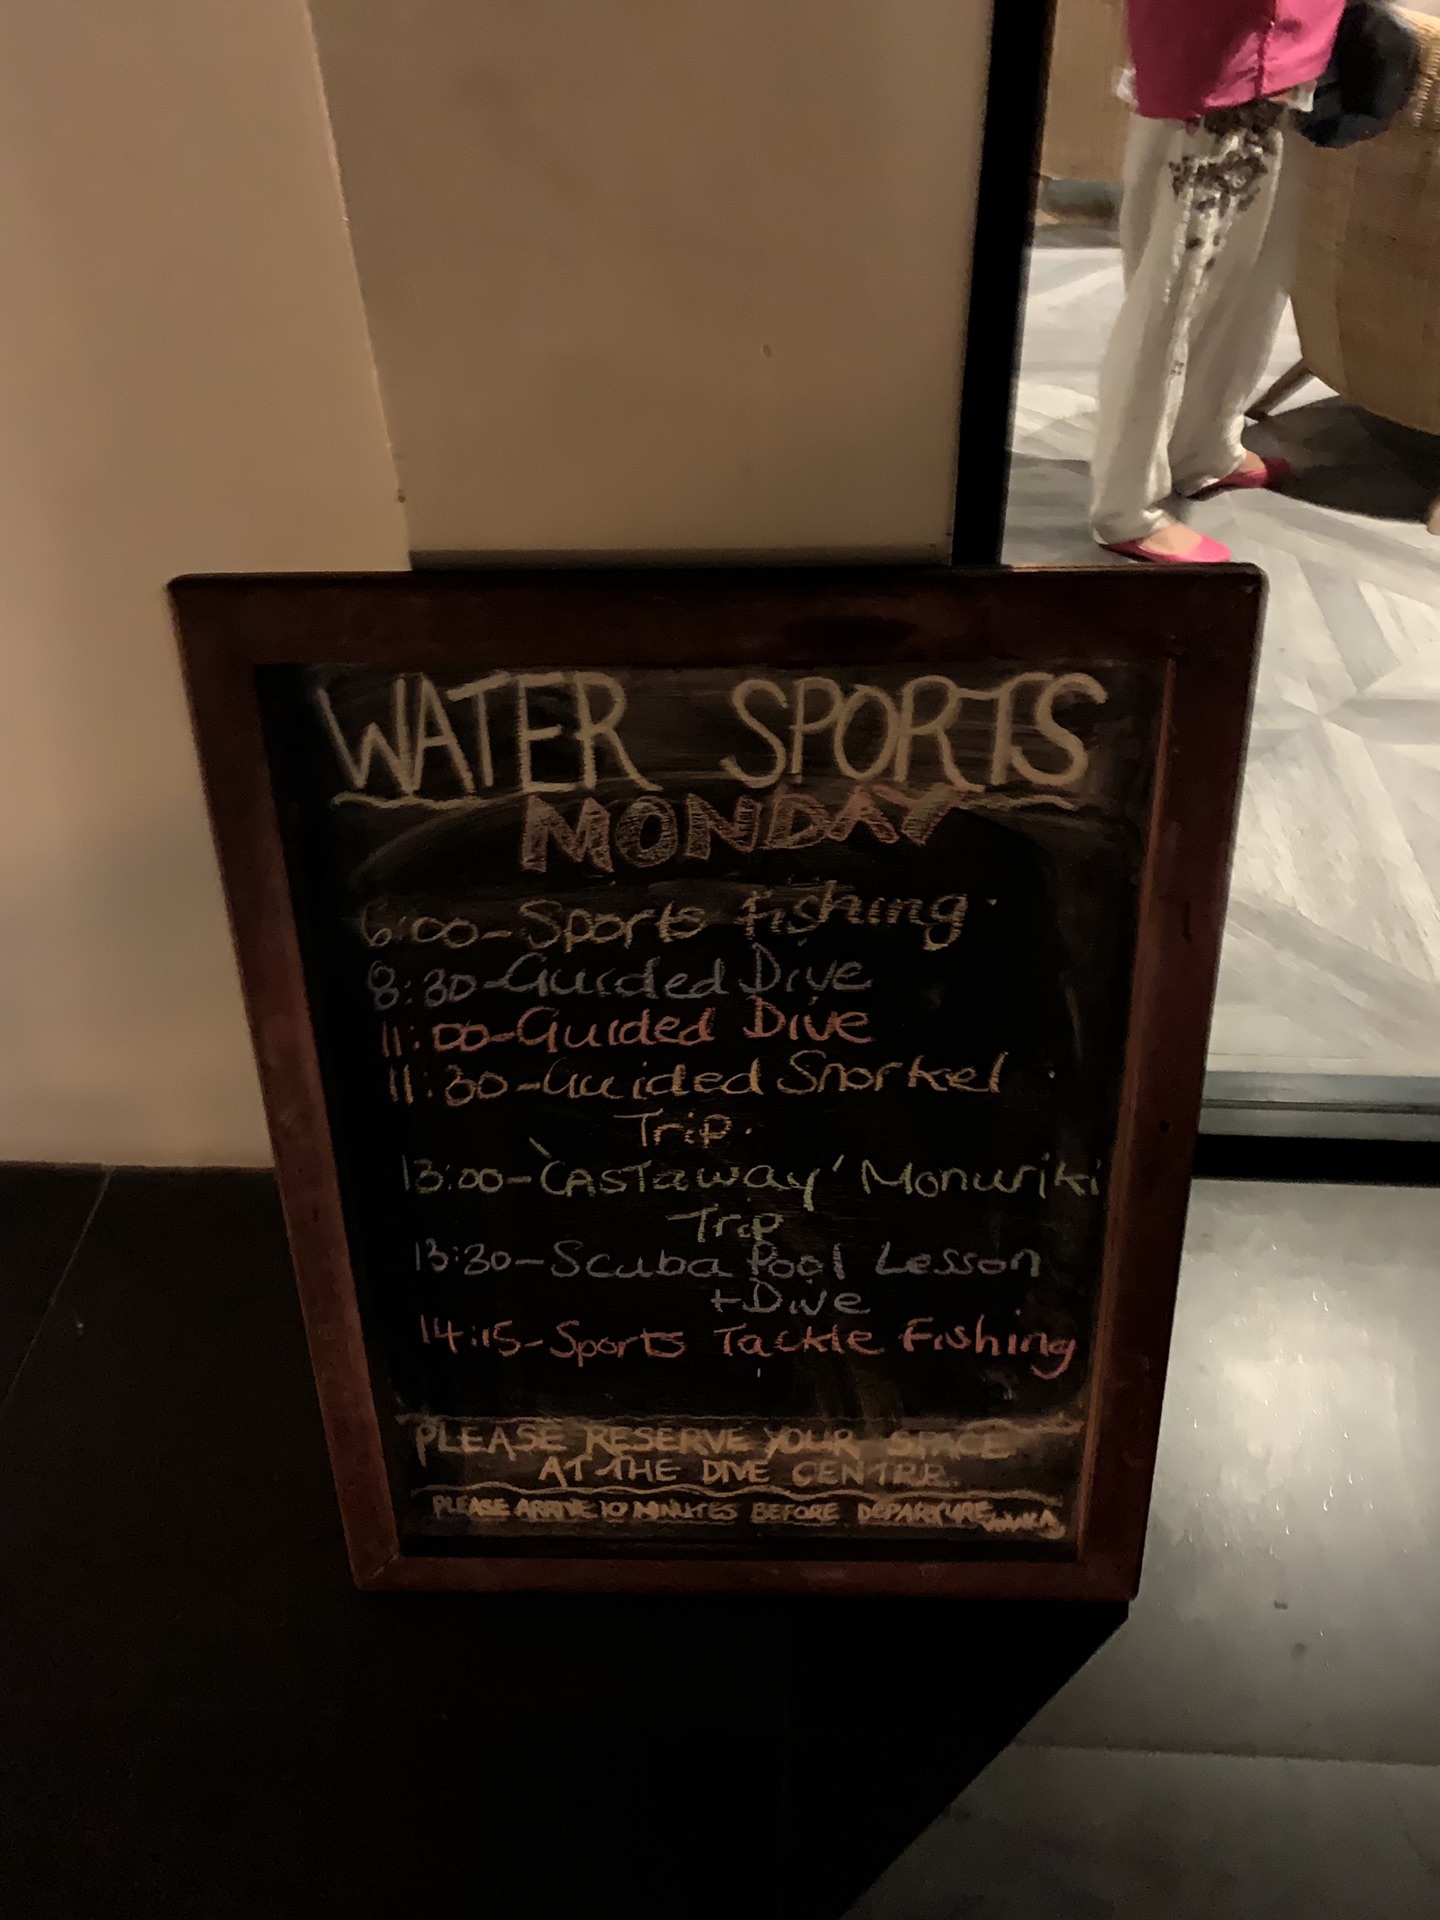 WATER SPORTS
MONDAY
6:00-Sports Fishing.
8:30-Guided Dive
11:00-Guided Dive
11:30-Guided Snorkel
Trip.
13:00-'CASTaway' Monuriki
Trip
13:30-Scuba Pool Lesson
+Dive
14:15-Sports Tackle Fishing
PLEASE RESERVE YOUR SPACE
AT THE DIVE CENTRE.
PLEASE ARRIVE 10 MINUTES BEFORE DEPARTURE